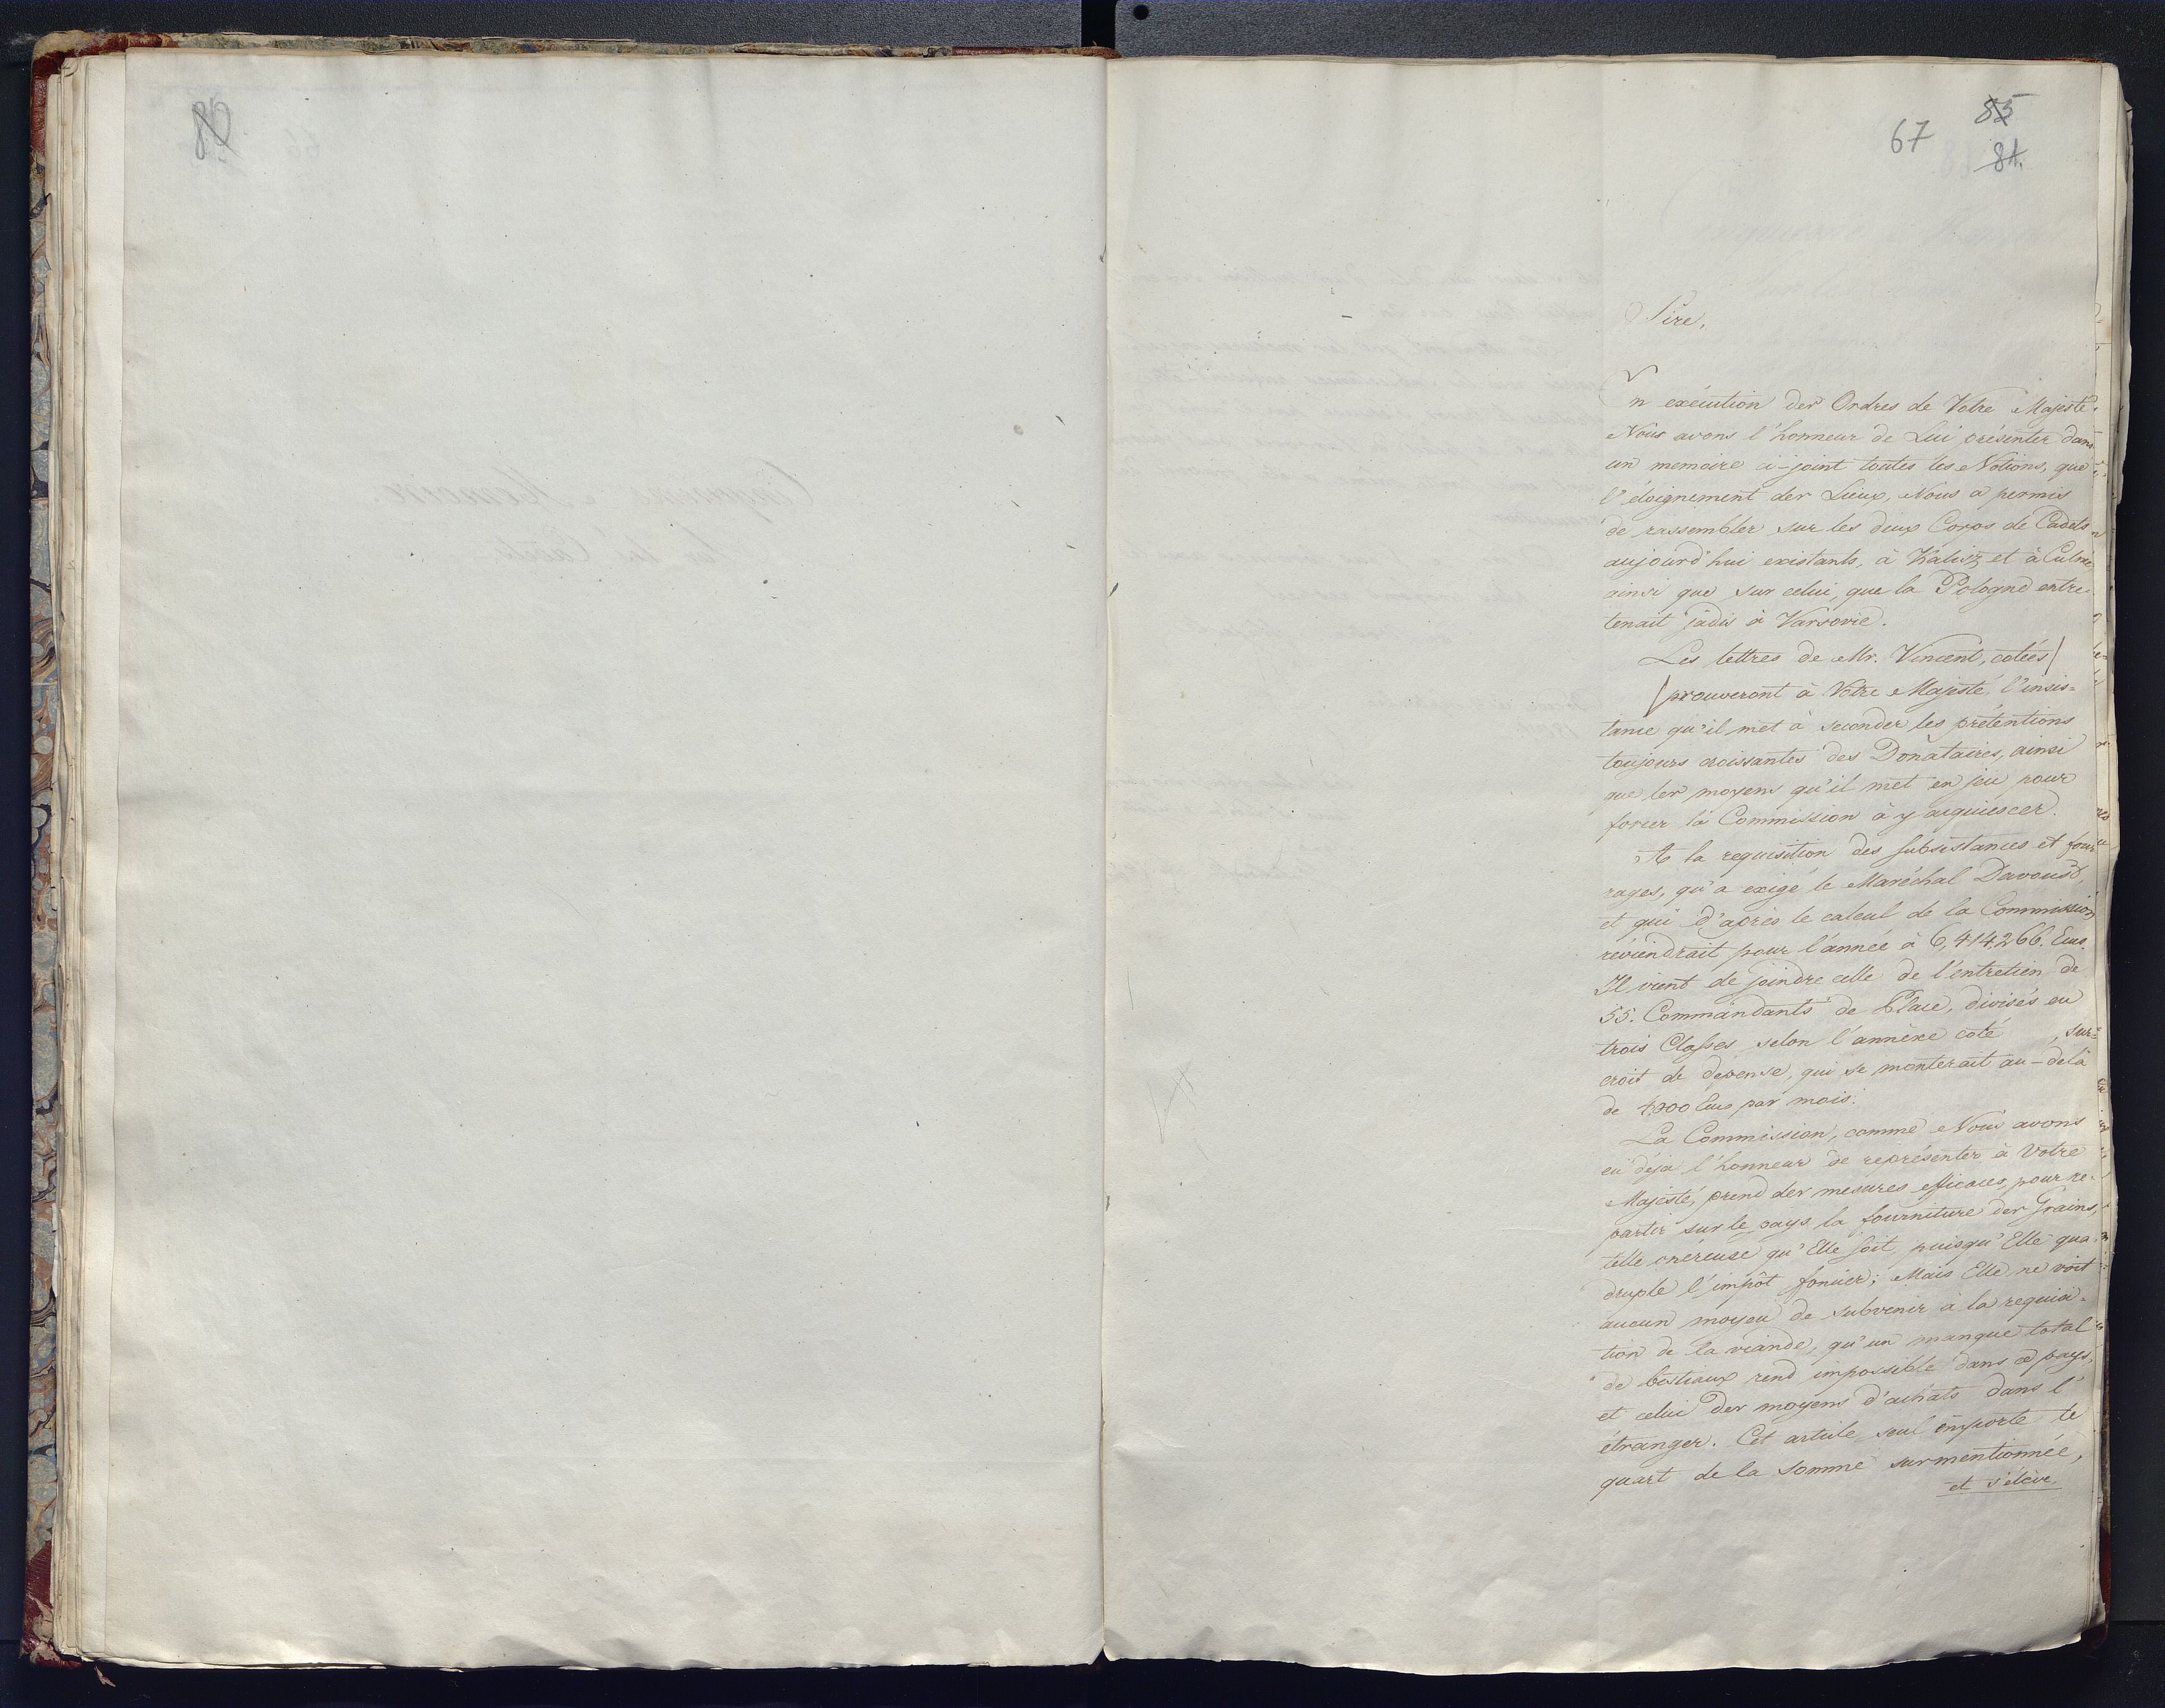 82
85
67
84.
Sire,
En exécution des Ordres de Votre Majesté,
Nous avons l'honneur de Lui présenter dans
un memoire ci-joint toutes les Notions, que
l'éloignement des Lieux, Nous a permis
de rassembler sur les deux Corps de Cadets
aujourd'hui existants, à Kalisz et à Culm,
ainsi que sur celui, que la Pologne entre-
tenait jadis à Varsovie.
Les lettres de Mr. Vincent, cotées
prouveront à Votre Majesté, l'insis=
tance qu'il met à seconder les prétentions
toujours croissantes des Donataires, ainsi
que les moyens qu'il met en jeu pour
forcer la Commission à y acquiescer.
A la requisition des subsistances et four
rages, qu'a exigé le Maréchal Davoust,
et qui d'après le calcul de la Commission
reviendrait pour l'année à 6,414,266. Ecus.
Il vient de joindre celle de l'entretien de
55. Commandants de Place, divisés en
trois Classes selon l'annèxe coté , sur=
croit de depense, qui se monterait au-delà
de 4,000 Ecus par mois.
La Commission, comme Nous avons
eu déja l'honneur de représenter à Votre
Majesté, prend des mesures efficaces, pour re-
partir sur le pays la fourniture des Grains,
telle onéreuse qu'Elle soit, puisqu'Elle qua-
druple l'impôt foncier; Mais Elle ne voit
aucun moyen de subvenir à la requisi-
tion de la viande, qu'un manque total
de bestiaux rend impossible dans ce pays,
et celui des moyens d'achats dans l'
étranger. Cet article seul emporte le
quart de la somme surmentionnée,
et s'élève